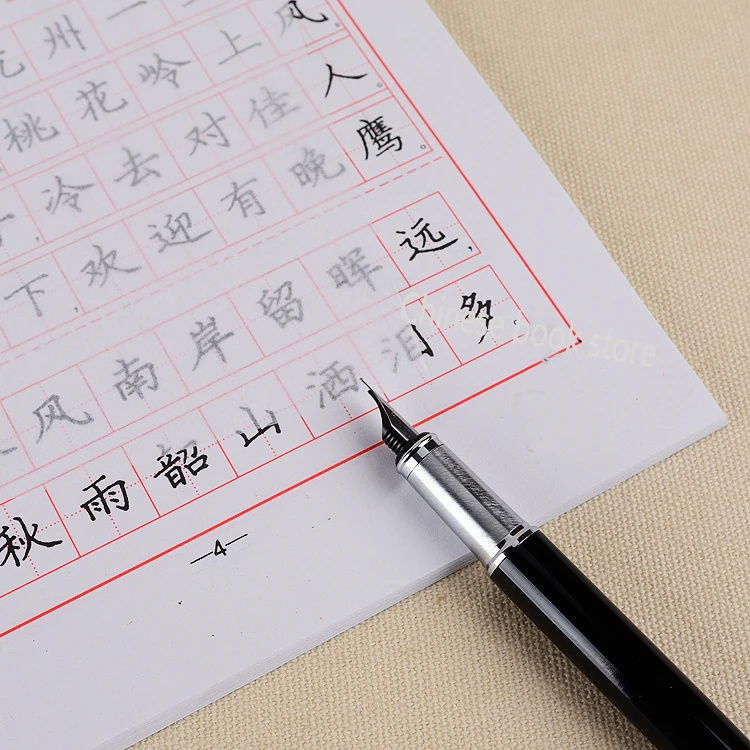 州一
桃花岭上风。
,冷去对佳人。
下,欢迎有晚鹰。
风南岸留晖远,
秋雨韶山洒泪多.
—4—
Chinese book store